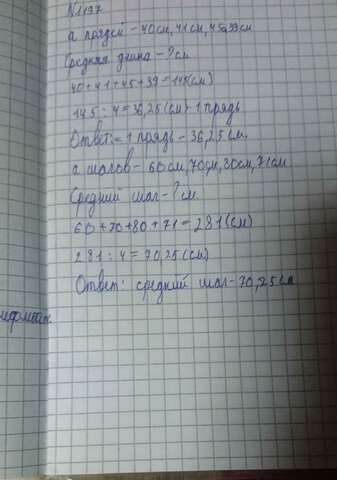 N1197
а прядей - 40см, 41см, 45см39см
Средняя длина - ? см
40+41+45+39=145(см)
145:4=36,25(см)- 1 прядь
Ответ:- 1 прядь - 36,25см.
а шагов - 60см,70см,80см,71см
Средний шаг - ? см
60+70+80+71=281(см)
281:4=70,25(см)
Ответ: средний шаг-70,25см